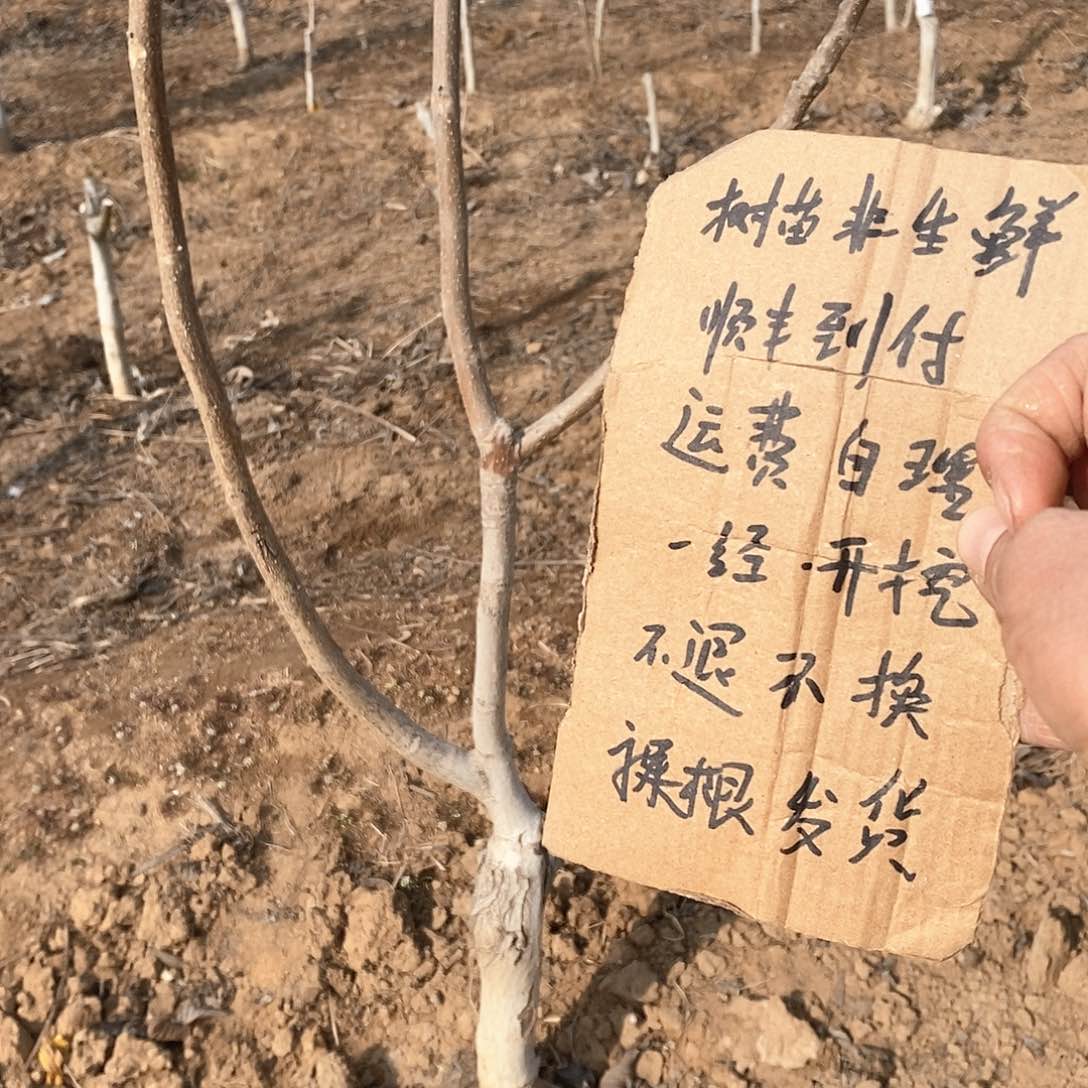 树苗非生鲜
顺丰到付
运费自理
一经开挖
不退不换
裸根发货